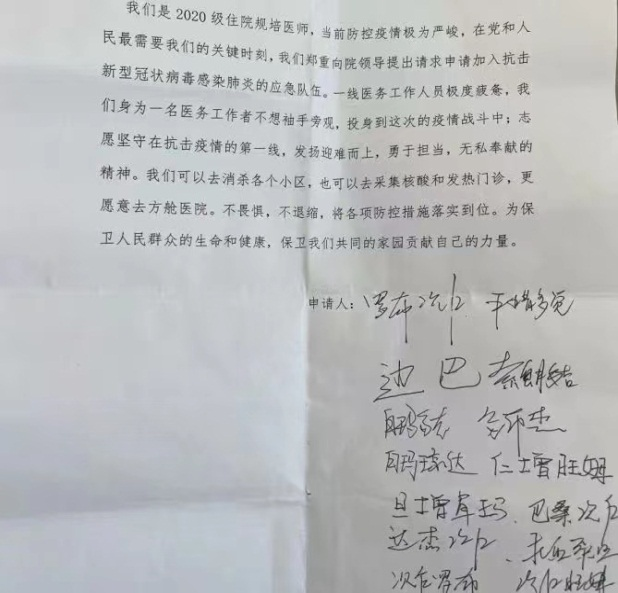 我们是2020级住院规培医师，当前防控疫情极为严峻，在党和人
民最需要我们的关键时刻，我们郑重向院领导提出请求申请加入抗击
新型冠状病毒感染肺炎的应急队伍。一线医务工作人员极度疲惫，我
们身为一名医务工作者不想袖手旁观，投身到这次的疫情战斗中；志
愿坚守在抗击疫情的第一线，发扬迎难而上，勇于担当，无私奉献的
精神。我们可以去消杀各个小区，也可以去采集核酸和发热门诊，更
愿意去方舱医院。不畏惧，不退缩，将各项防控措施落实到位。为保
卫人民群众的生命和健康，保卫我们共同的家园贡献自己的力量。
申请人：罗布次仁 平措多觉
边巴
多布杰
仁增旺姆
旦增卓玛、巴桑次仁
达杰次仁、
次旺罗布